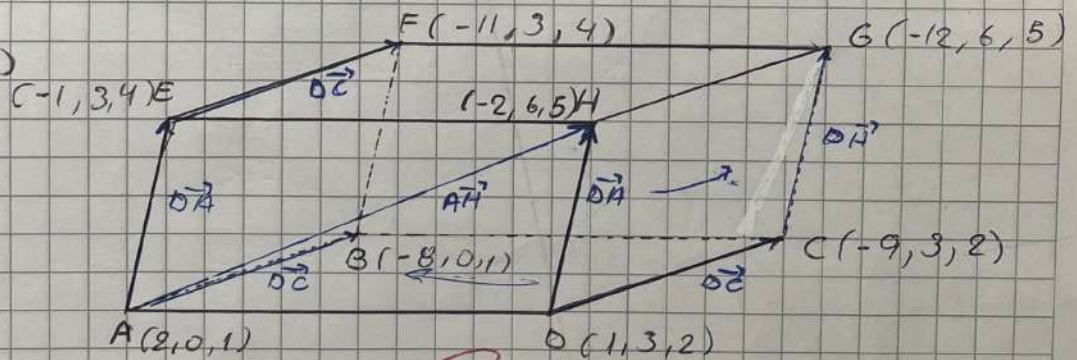 )
F(-11, 3, 4)
G(-12, 6, 5)
(-1, 3, 4)E
DC
(-2, 6, 5)H
DH
DH
AH
DH
B(-8, 0, 1)
C(-9, 3, 2)
DC
DC
A(2, 0, 1)
D(1, 3, 2)